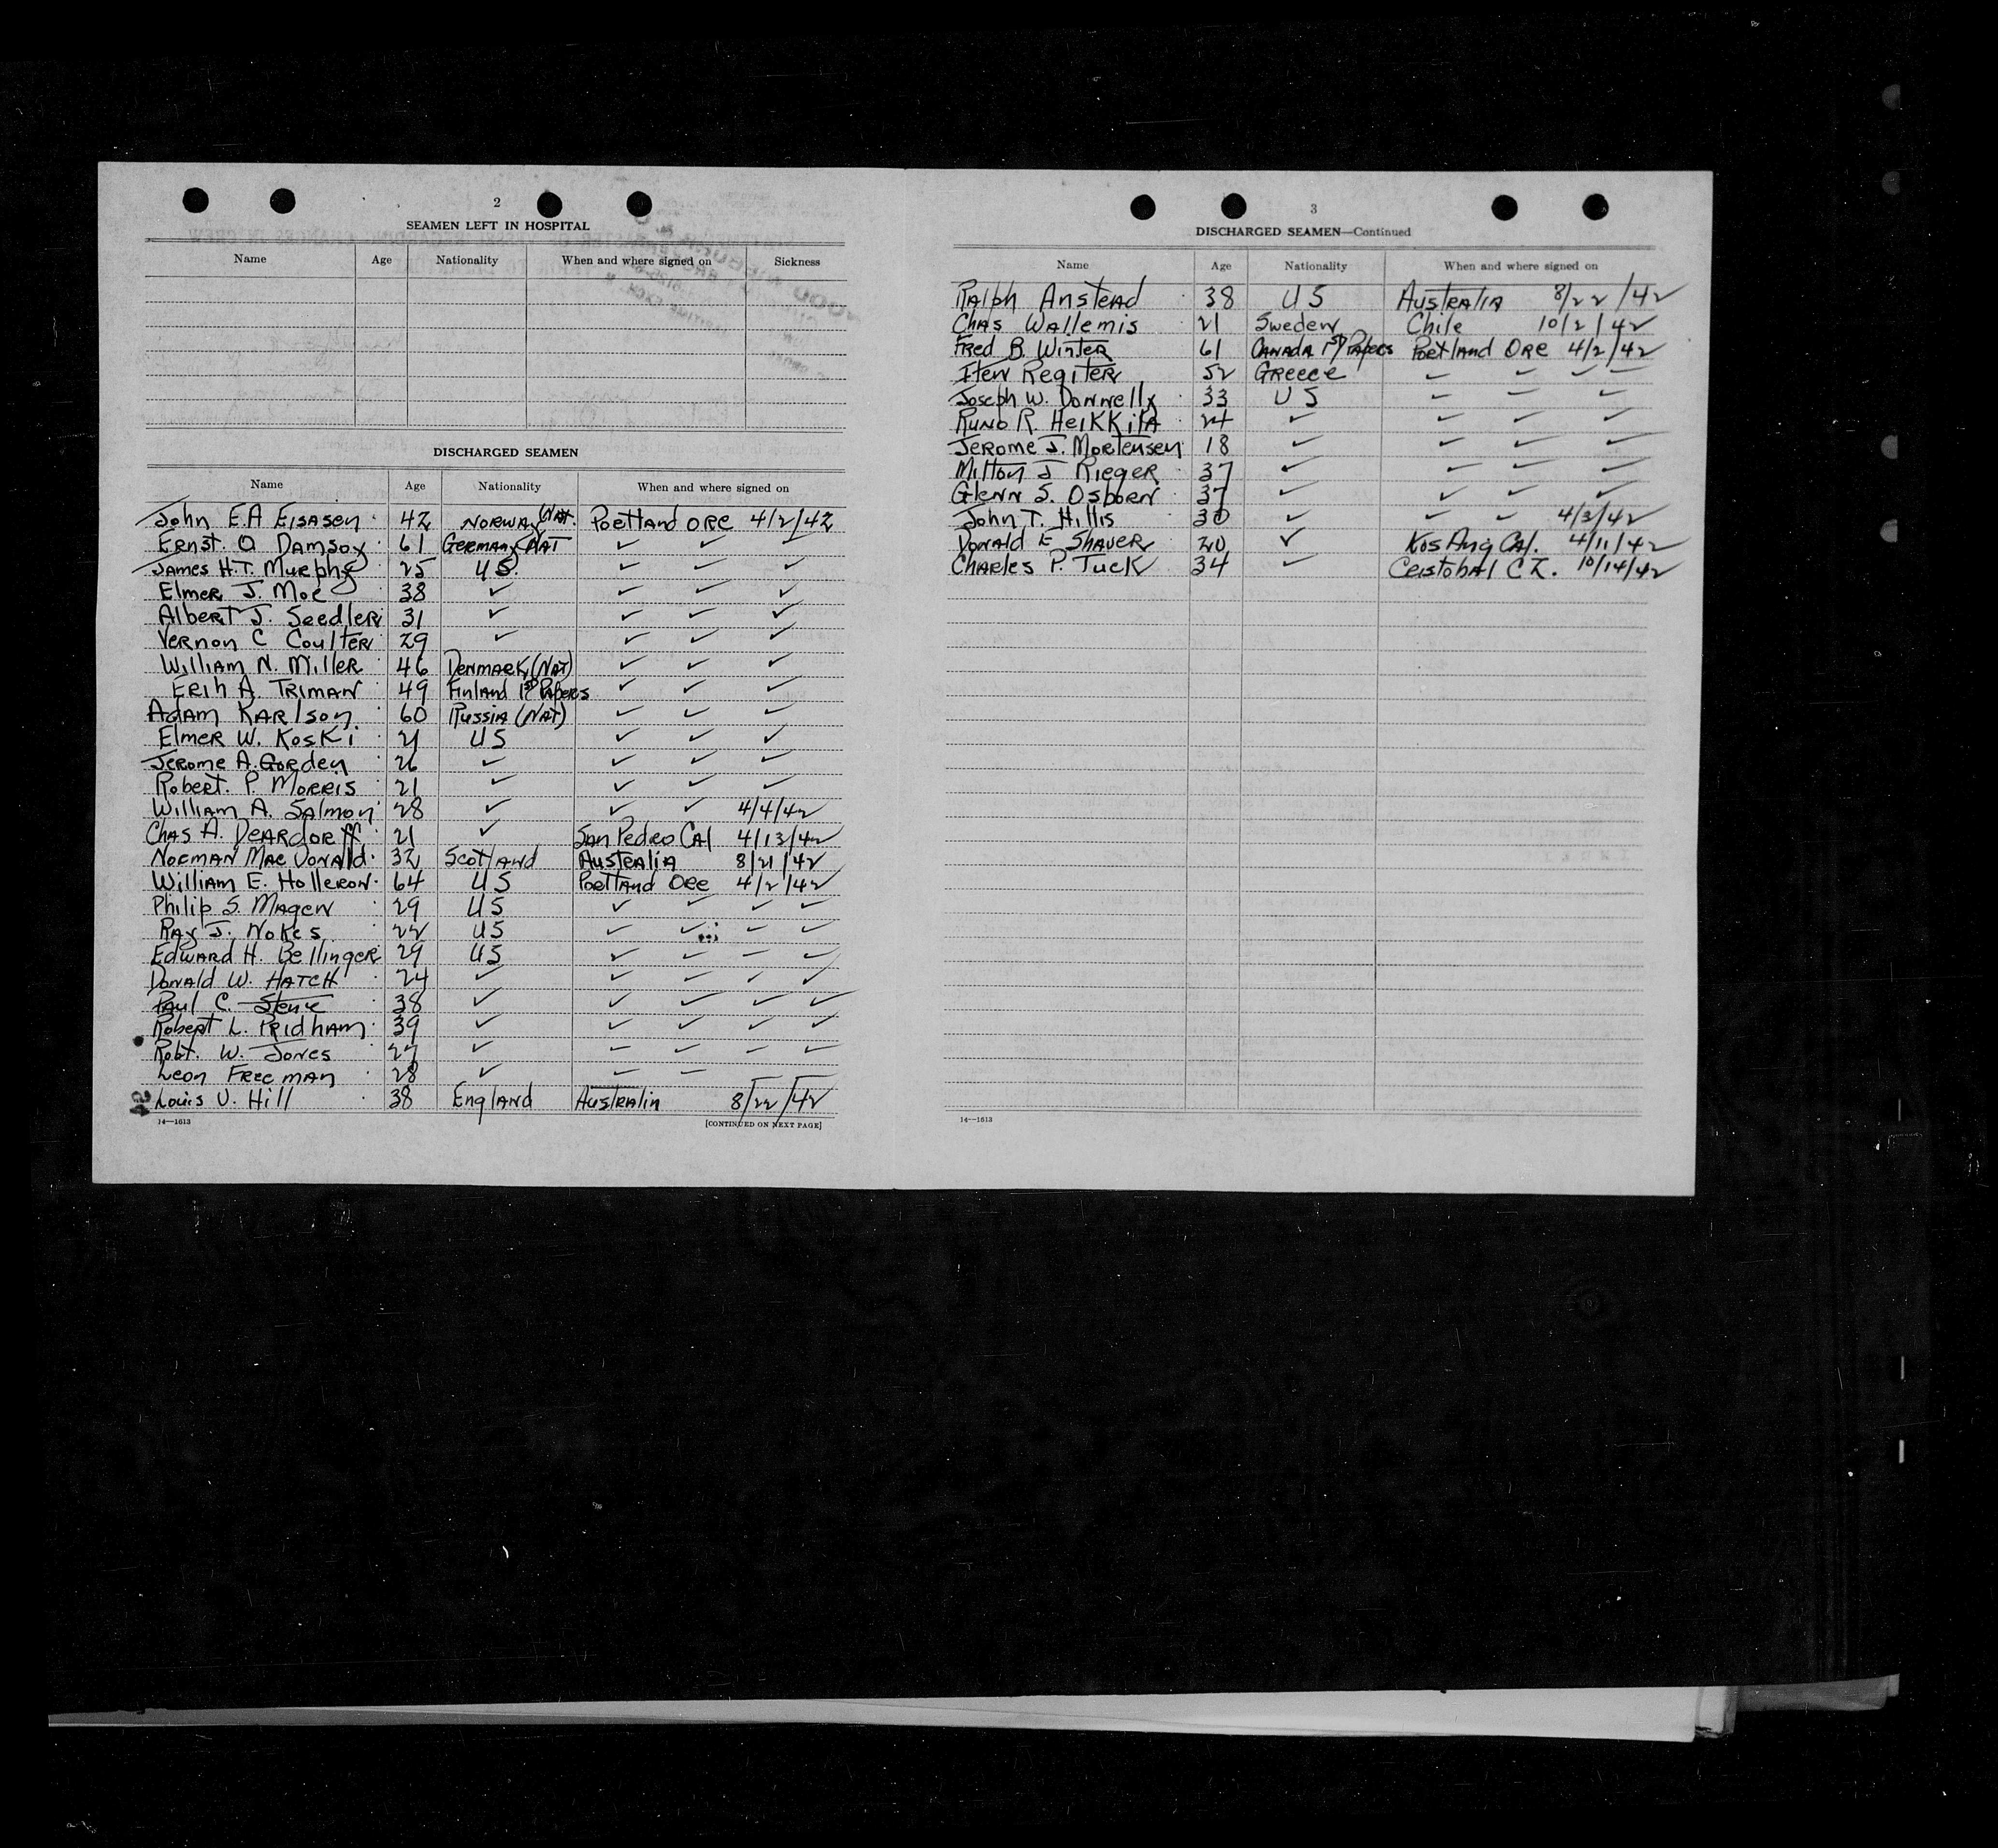 2
SEAMEN LEFT IN HOSPITAL
Name Age Nationality When and where signed on Sickness
DISCHARGED SEAMEN
Name Age Nationality When and where signed on
John E.A Eisasen 42 Norway (Nat. Portland Ore 4/2/42
Ernst. O Damsoy 61 Germany Nat ✓ ✓ ✓
James H.T. Murphy 25 US ✓ ✓ ✓
Elmer J. Moe 38 ✓ ✓ ✓ ✓
Albert J. Seedler 31 ✓ ✓ ✓ ✓
Vernon C Coulter 29 ✓ ✓ ✓ ✓
William N. Miller 46 Denmark (Nat) ✓ ✓ ✓
Erih A. Triman 49 Finland 1st Papers ✓ ✓ ✓
Adam Karlson 60 Russia (Nat) ✓ ✓ ✓
Elmer W. Koski 21 US ✓ ✓ ✓
Jerome A. Gorden 26 ✓ ✓ ✓ ✓
Robert. P. Morris 21 ✓ ✓ ✓ ✓
William A. Salmon 28 ✓ ✓ ✓ 4/4/42
Chas A. Deardorff 21 ✓ San Pedro Cal 4/13/42
Norman MacDonald 32 Scotland Australia 8/21/42
William E. Holleron 64 US Portland Ore 4/2/42
Philip S. Magen 29 US ✓ ✓ ✓ ✓
Ray J. Nokes 22 US ✓ ✓ ✓ ✓
Edward H. Bellinger 29 US ✓ ✓ ✓ ✓
Donald W. Hatch 24 ✓ ✓ ✓ ✓ ✓
Paul C. 38 ✓ ✓ ✓ ✓ ✓
Robert L. Pridham 39 ✓ ✓ ✓ ✓ ✓
Robt. W. Jones 27 ✓ ✓ ✓ ✓ ✓
Leon Freeman 28 ✓ ✓ ✓
Louis V. Hill 38 England Australia 8/22/42
14—1613 [CONTINUED ON NEXT PAGE]
3
DISCHARGED SEAMEN—Continued
Name Age Nationality When and where signed on
Ralph Anstead 38 US Australia 8/22/42
Chas Wallemis 21 Sweden Chile 10/2/42
Fred B. Winter 61 Canada 1st Papers Portland Ore 4/2/42
Iten Regiter 52 Greece ✓ ✓ ✓ ✓
Joseph W. Donnelly 33 US ✓ ✓ ✓
Runo R. Heikkila 24 ✓ ✓ ✓ ✓
Jerome J. Mortensen 18 ✓ ✓ ✓ ✓
Milton J Rieger 37 ✓ ✓ ✓ ✓
Glenn S. Osborn 37 ✓ ✓ ✓ ✓
John T. Hillis 30 ✓ ✓ ✓ 4/3/42
Donald E Shaver 20 ✓ Los Ang Cal. 4/11/42
Charles P. Tuck 34 ✓ Cristobal C Z. 10/14/42
14—1613